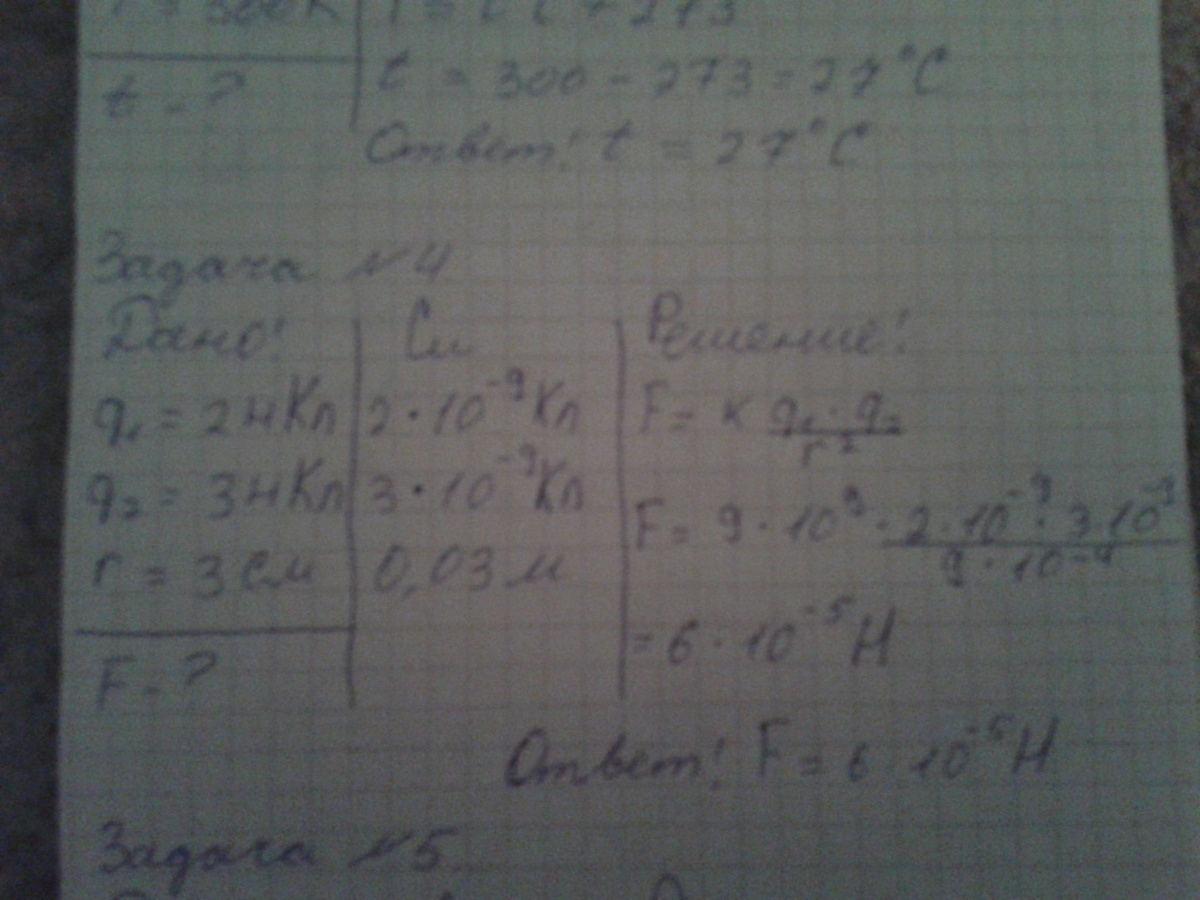 T = 300K T = t + 273
t - ? t = 300 - 273 = 27°C
Ответ! t = 27°C
Задача №4
Дано! Си Решение!
q₁ = 2 нКл 2 · 10⁻⁹ Кл F = к q₁ · q₂ / r²
q₂ = 3 нКл 3 · 10⁻⁹ Кл F = 9 · 10⁹ · 2 · 10⁻⁹ · 3 · 10⁻⁹ / 9 · 10⁻⁴
r = 3 см 0,03 м
F - ? = 6 · 10⁻⁵ Н
Ответ! F = 6 · 10⁻⁵ Н
Задача №5